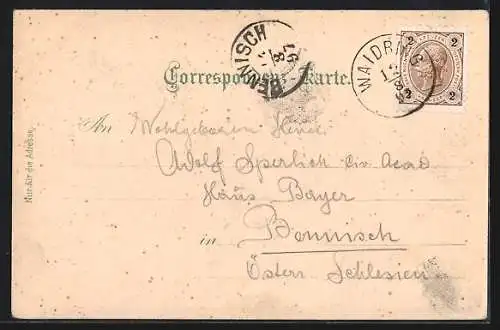 BENNISCH
Correspondenz-Karte.
WAIDRING
2 2
2 2
An Wohlgeboren Herrn
Adolf Sperlich
Haus Bayer
in Bennisch
Österr. Schlesien
Nur für die Adresse.